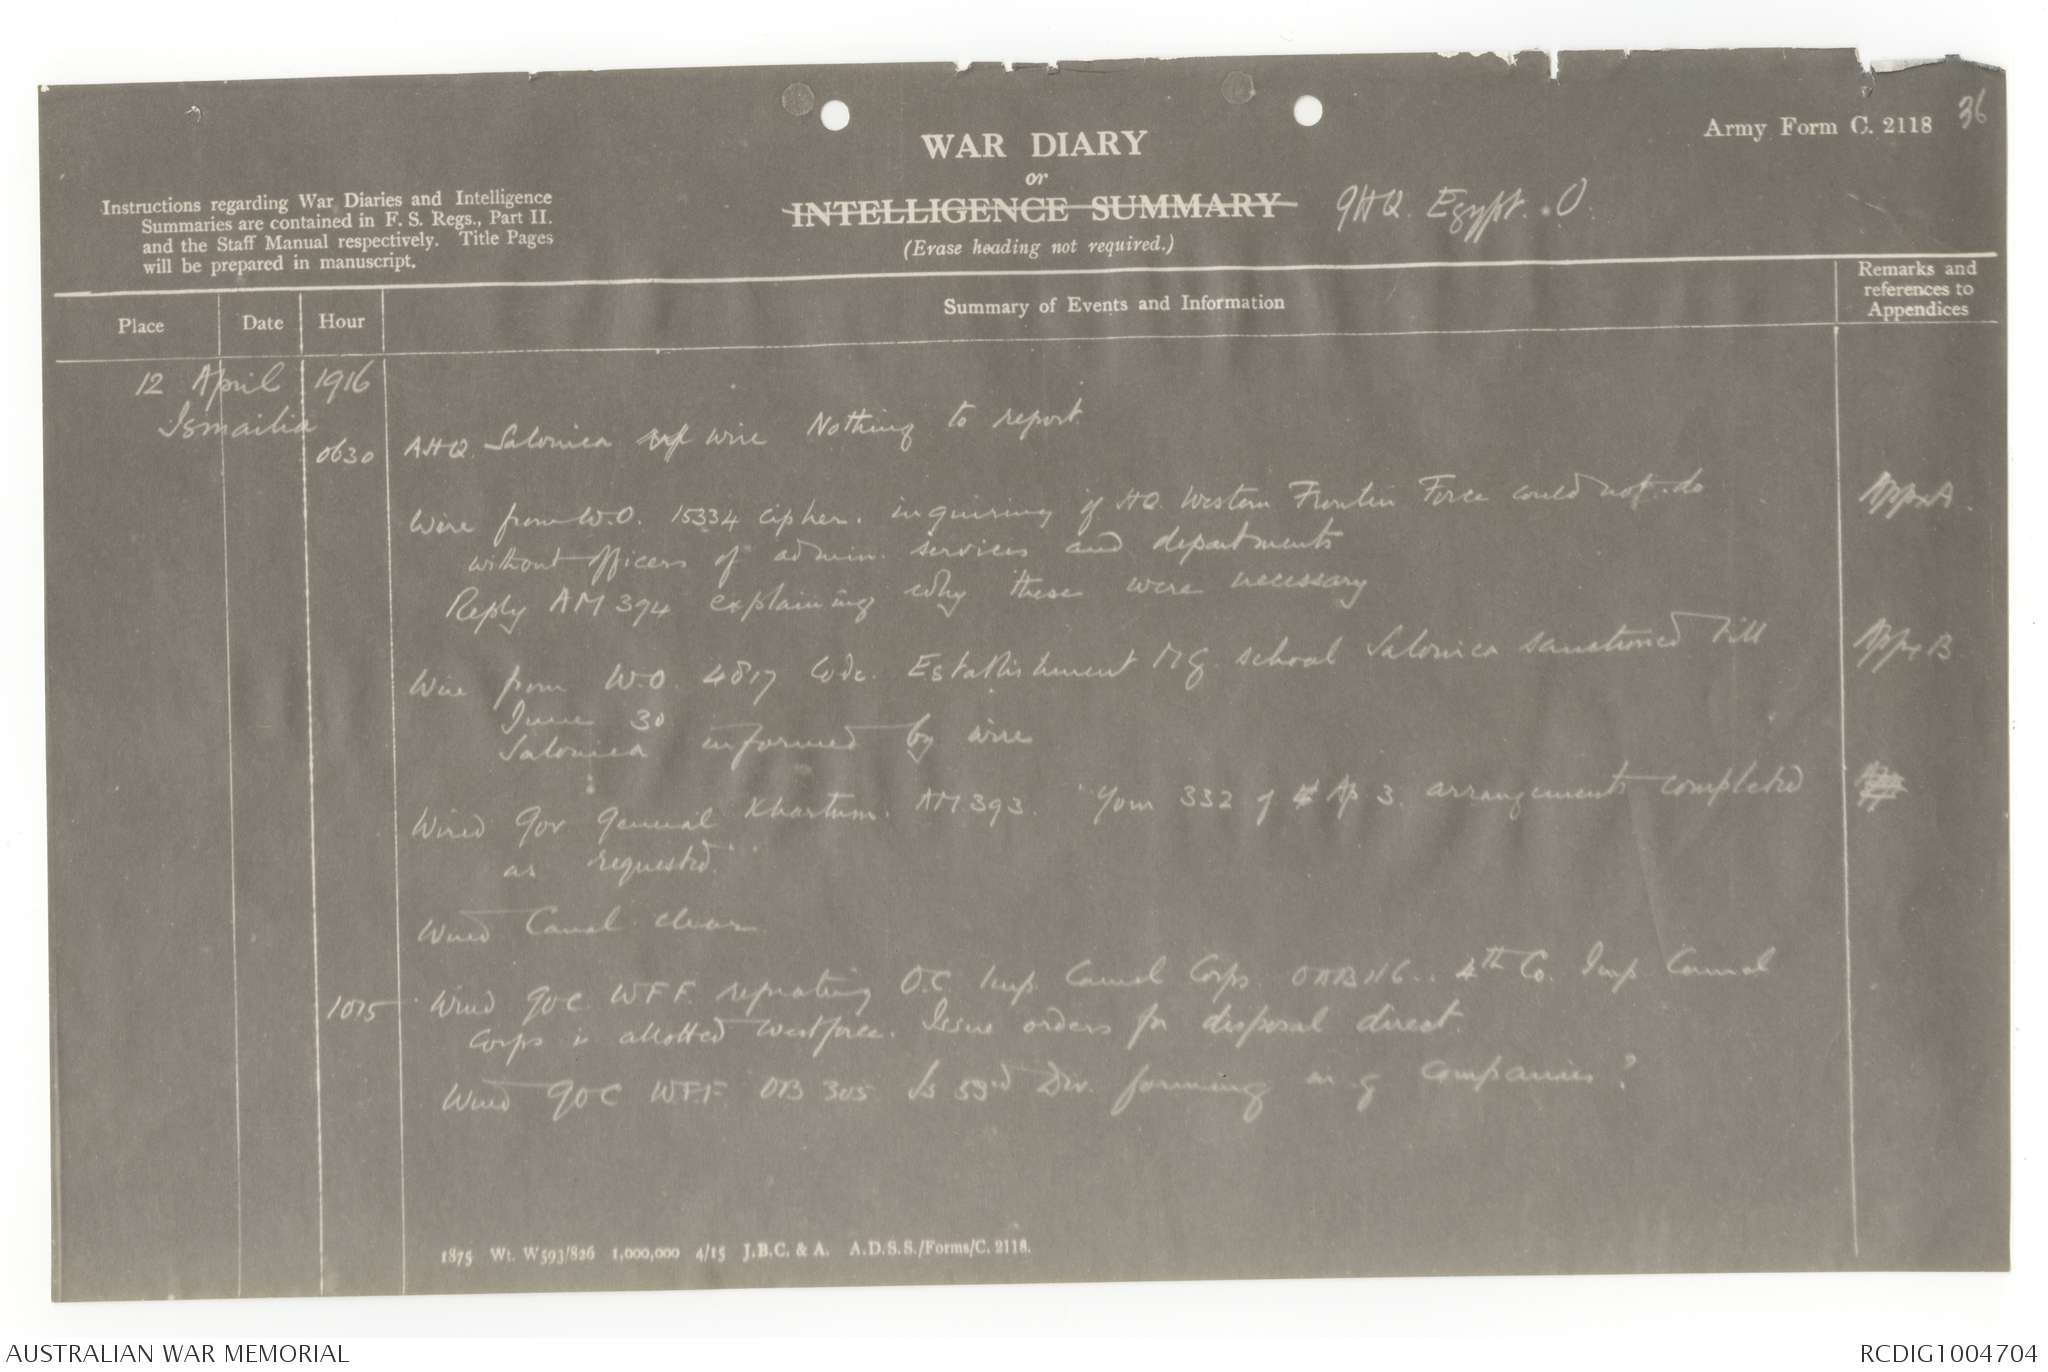 36
Army Form C. 2118
WAR DIARY
or
INTELLIGENCE SUMMARY
(Erase heading not required.)
GHQ. Egypt. O.
Instructions regarding War Diaries and Intelligence
Summaries are contained in F. S. Regs., Part II.
and the Staff Manual respectively. Title Pages
will be prepared in manuscript.
Place Date Hour Summary of Events and Information Remarks and
references to
Appendices
12 April 1916
Ismailia
0630 AHQ Salonica wire Nothing to report
Wire from W.O. 15334 cipher. inquiring if HQ. Western Frontier Force could not do Appx A.
without officers of admin. services and departments
Reply AM 394 explaining why these were necessary
Wire from W.O. 4817 Code. Establishment MG. school Salonica sanctioned till Appx B
June 30
Salonica informed by wire
Wired Gov General Khartum. AM.393. "Your 332 of Ap 3. arrangements completed
as requested."
Wired Canal clear
1015 Wired GOC. WFF. repeating O.C. Imp. Camel Corps. OAB116.. 4th Co. Imp. Camel
Corps is allotted Westforce. Issue orders for disposal direct.
Wired GOC WFF. OB 305 Is 53rd Div. forming m. g companies?
1875 Wt. W593/826 1,000,000 4/15 J.B.C. & A. A.D.S.S./Forms/C. 2118.
AUSTRALIAN WAR MEMORIAL
RCDIG1004704